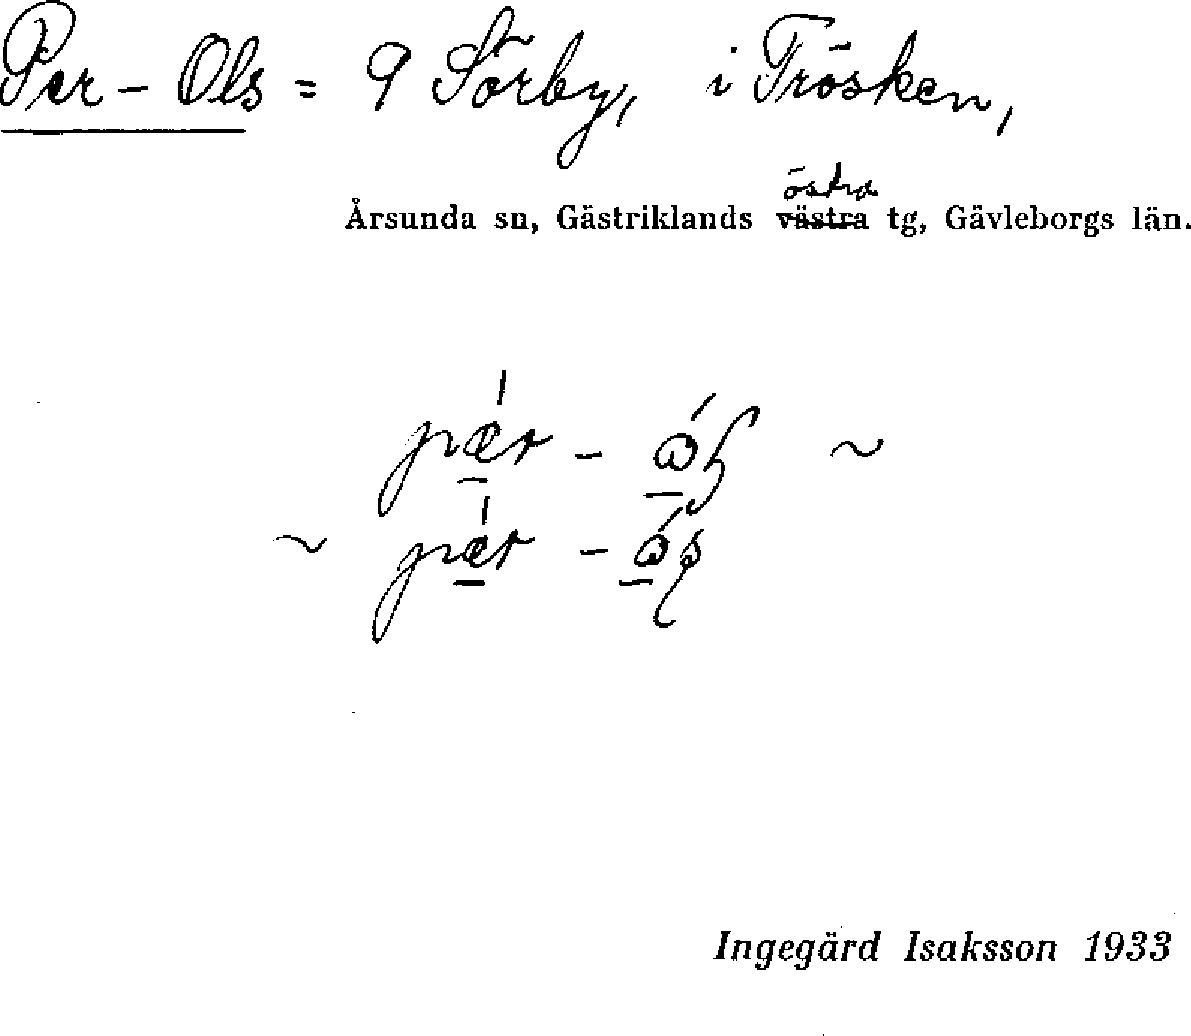 Per-Ols = 9 Sörby, i Trösken,
östra
Årsunda sn, Gästriklands västra tg, Gävleborgs län.
pǽr -
~
~ pǽr -
Ingegärd Isaksson 1933